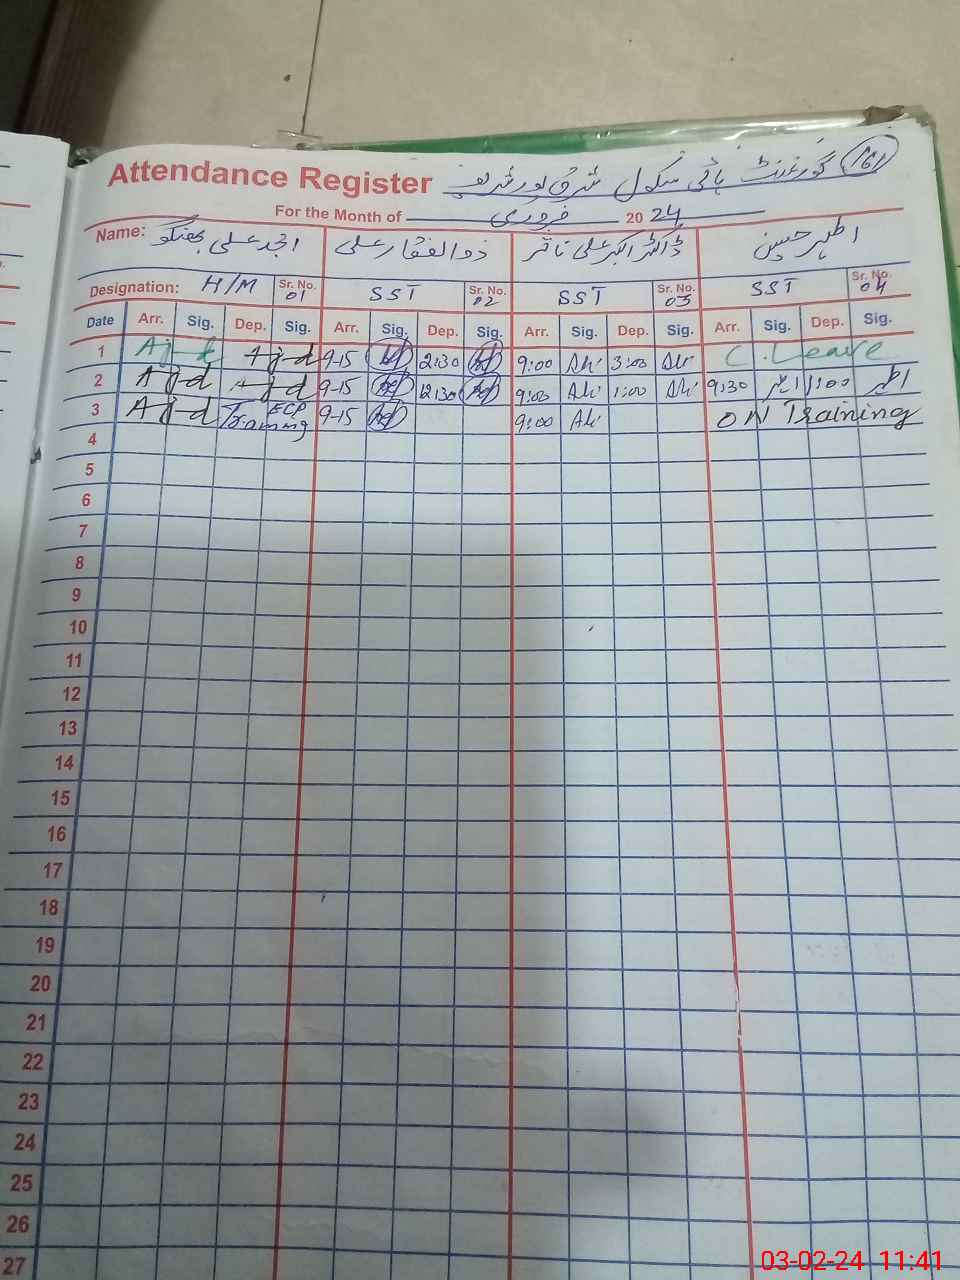 Attendance Register گورنمنٹ ہائی سکول شرق پور شریف 161
For the Month of فروری 2024
Name: امجد علی ذوالفقار علی ڈاکٹر اکبر علی اطہر حسین
Designation: H/M Sr. No. 01 SST Sr. No. 02 SST Sr. No. 03 SST Sr. No. 04
Date Arr. Sig. Dep. Sig. Arr. Sig. Dep. Sig. Arr. Sig. Dep. Sig. Arr. Sig. Dep. Sig.
1 9-15 2:30 9:00 Ali 3:00 Ali C. Leave
2 9-15 12:30 9:00 Ali 1:00 Ali 9:30 اطہر 1:00 اطہر
3 Training 9-15 9:00 Ali ON Training
4
5
6
7
8
9
10
11
12
13
14
15
16
17
18
19
20
21
22
23
24
25
26
27
03-02-24 11:41